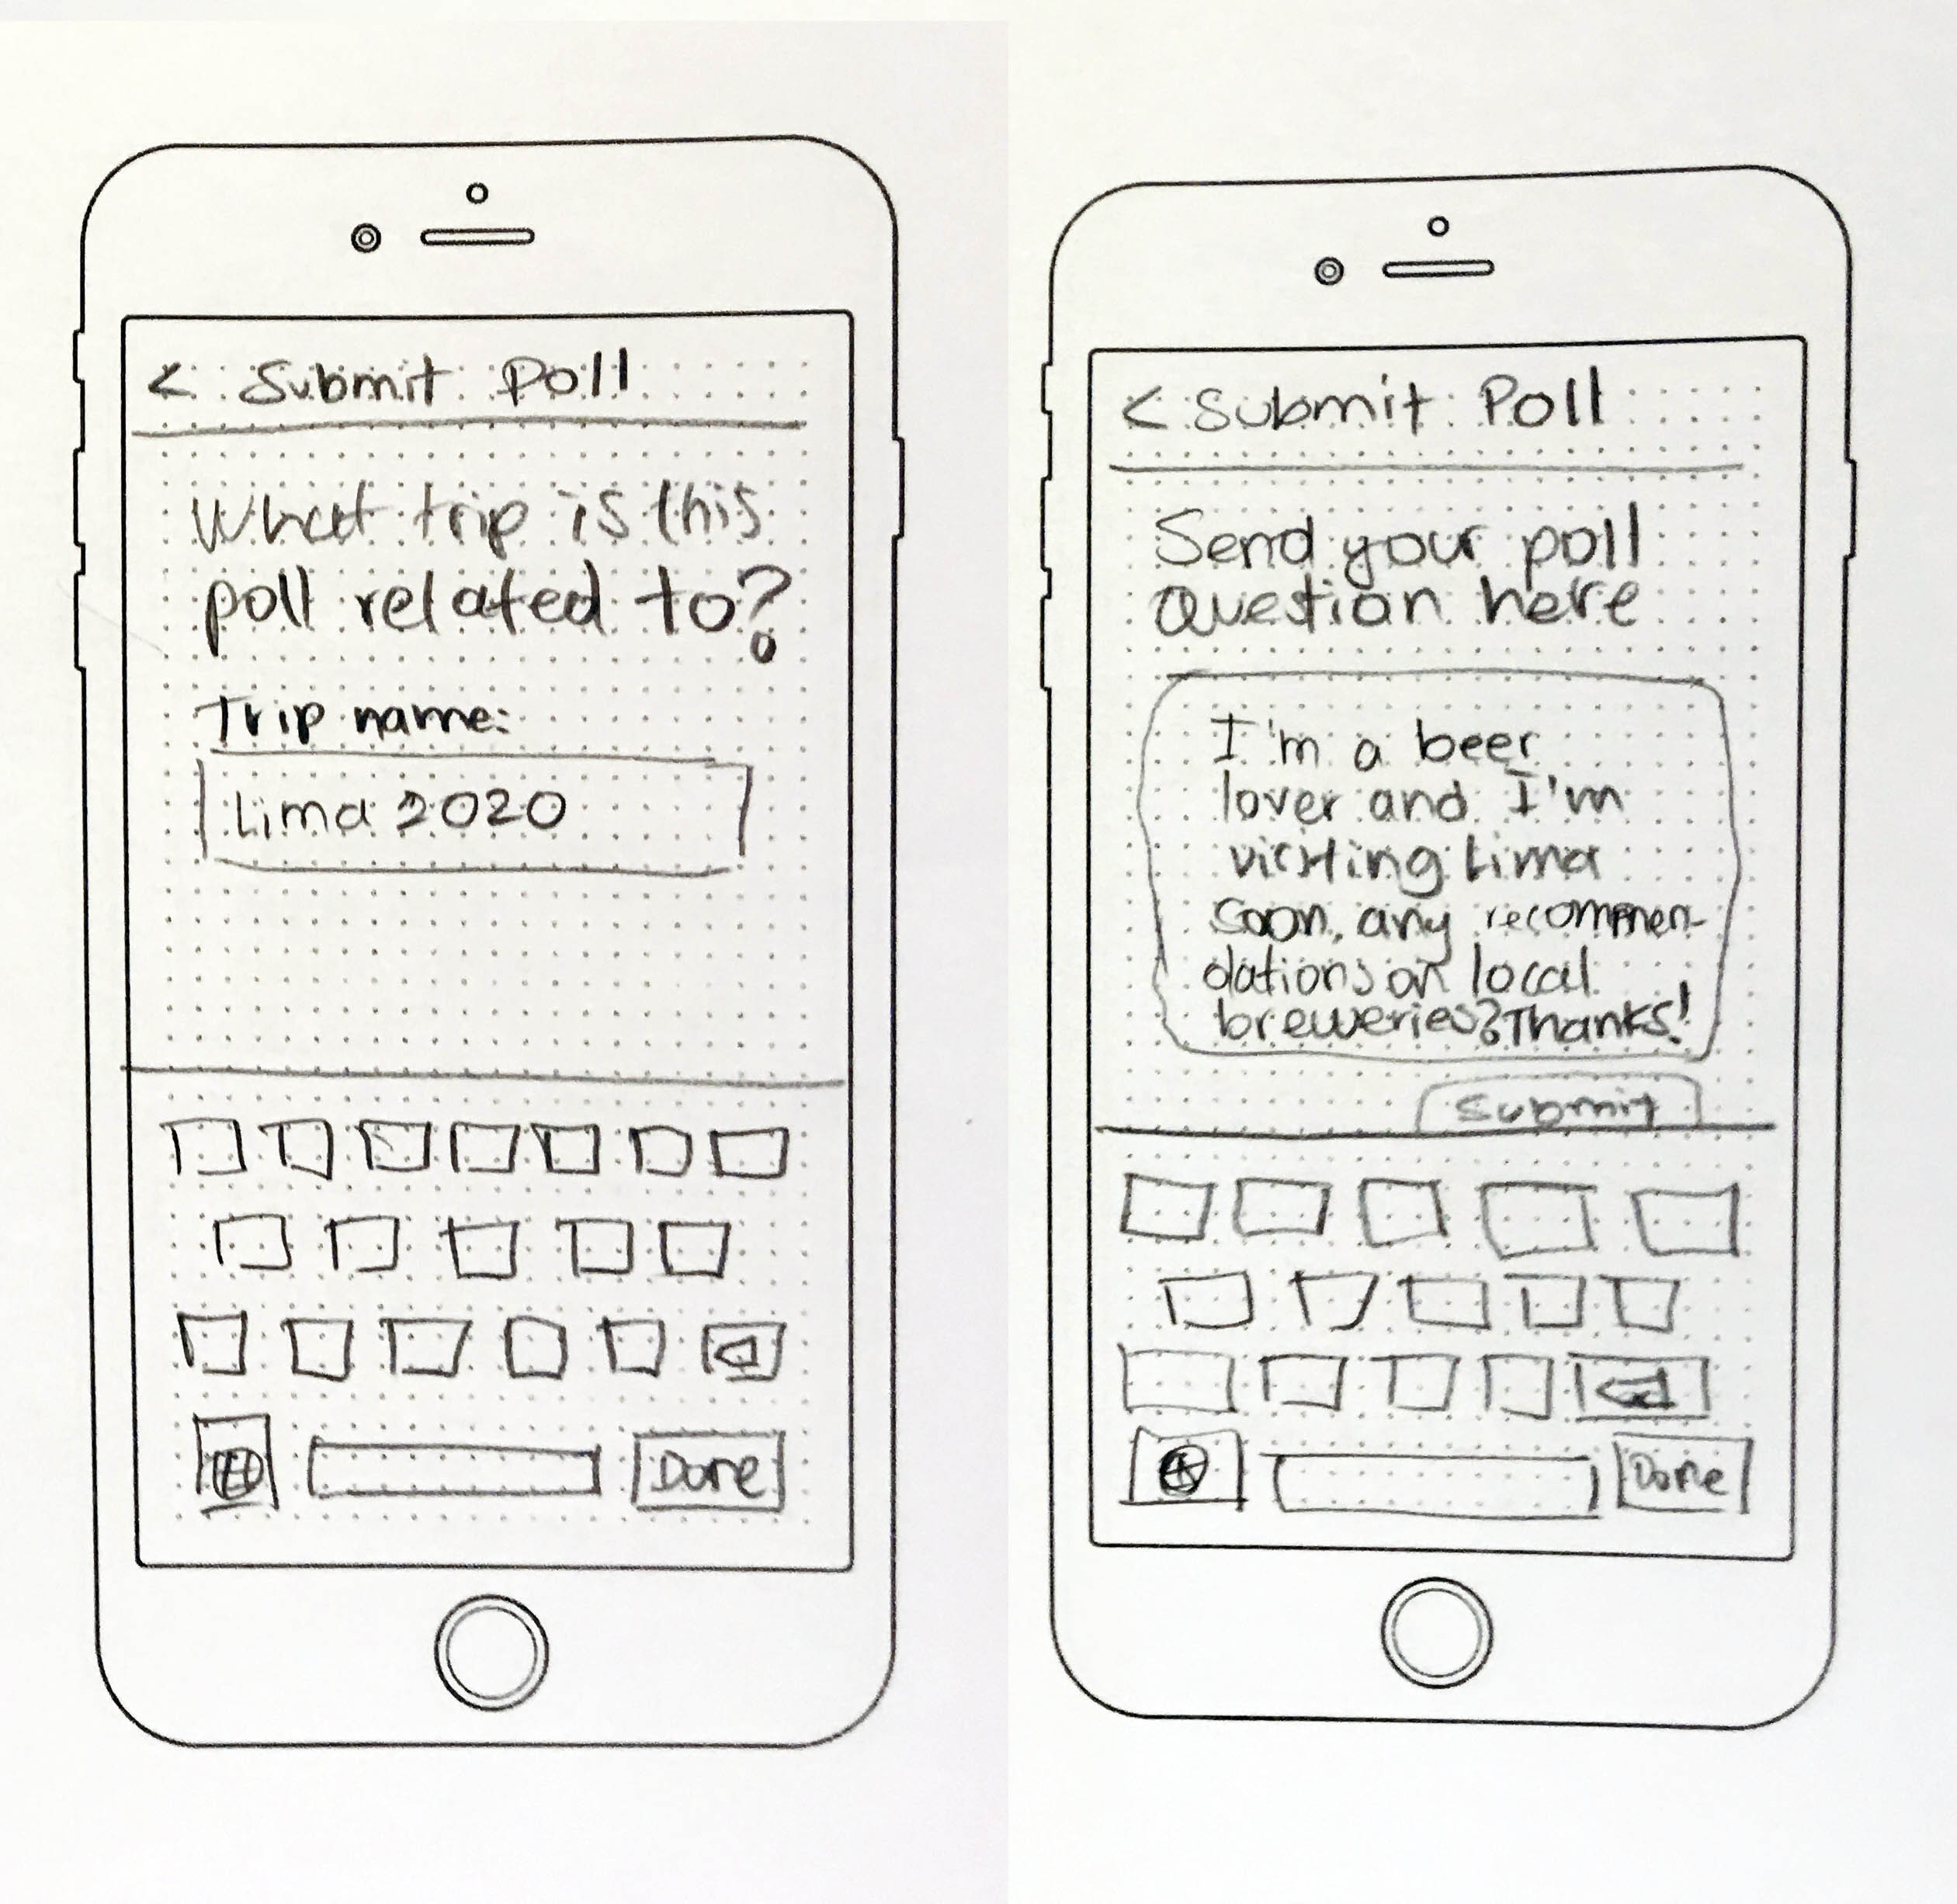 < Submit Poll
What trip is this
poll related to?
Trip name:
Lima 2020
Done
< Submit Poll
Send your poll
question here
I'm a beer
lover and I'm
visiting Lima
soon, any recommen-
dations on local
breweries? Thanks!
Submit
Done